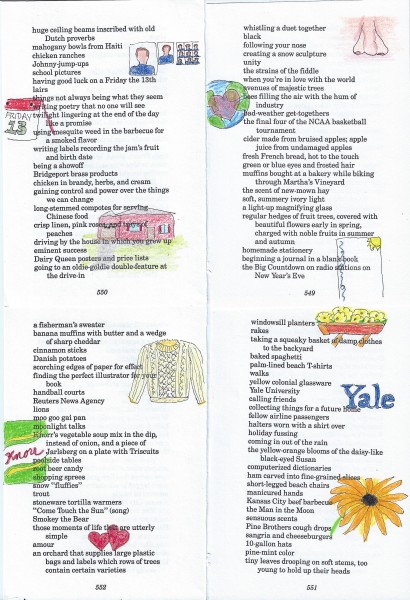 huge ceiling beams inscribed with old
Dutch proverbs
mahogany bowls from Haiti
chicken ranches
Johnny-jump-ups
school pictures
having good luck on a Friday the 13th
lairs
things not always being what they seem
writing poetry that no one will see
twilight lingering at the end of the day
like a promise
using mesquite weed in the barbecue for
a smoked flavor
writing labels recording the jam's fruit
and birth date
being a showoff
Bridgeport brass products
chicken in brandy, herbs, and cream
gaining control and power over the things
we can change
long-stemmed compotes for serving
Chinese food
crisp linen, pink roses, and
peaches
driving by the house in which you grew up
eminent success
Dairy Queen posters and price lists
going to an oldie-goldie double-feature at
the drive-in
550
FRIDAY
13
whistling a duet together
black
following your nose
creating a snow sculpture
unity
the strains of the fiddle
when you're in love with the world
avenues of majestic trees
bees filling the air with the hum of
industry
bad-weather get-togethers
the final four of the NCAA basketball
tournament
cider made from bruised apples; apple
juice from undamaged apples
fresh French bread, hot to the touch
green or blue eyes and frosted hair
muffins bought at a bakery while biking
through Martha's Vineyard
the scent of new-mown hay
soft, summery ivory light
a light-up magnifying glass
regular hedges of fruit trees, covered with
beautiful flowers early in spring,
charged with noble fruits in summer
and autumn
homemade stationery
beginning a journal in a blank book
the Big Countdown on radio stations on
New Year's Eve
549
a fisherman's sweater
banana muffins with butter and a wedge
of sharp cheddar
cinnamon sticks
Danish potatoes
scorching edges of paper for effect
finding the perfect illustrator for your
book
handball courts
Reuters News Agency
lions
moo goo gai pan
moonlight talks
Knorr's vegetable soup mix in the dip,
instead of onion, and a piece of
Jarlsberg on a plate with Triscuits
poolside tables
root beer candy
shopping sprees
snow "fluffies"
trout
stoneware tortilla warmers
"Come Touch the Sun" (song)
Smokey the Bear
those moments of life that are utterly
simple
amour
an orchard that supplies large plastic
bags and labels which rows of trees
contain certain varieties
552
Knorr
windowsill planters
rakes
taking a squeaky basket of damp clothes
to the backyard
baked spaghetti
palm-lined beach T-shirts
walks
yellow colonial glassware
Yale University
calling friends
collecting things for a future home
fellow airline passengers
halters worn with a shirt over
holiday fussing
coming in out of the rain
the yellow-orange blooms of the daisy-like
black-eyed Susan
computerized dictionaries
ham carved into fine-grained slices
short-legged beach chairs
manicured hands
Kansas City beef barbecue
the Man in the Moon
sensuous scents
Pine Brothers cough drops
sangria and cheeseburgers
10-gallon hats
pine-mint color
tiny leaves drooping on soft stems, too
young to hold up their heads
551
Yale